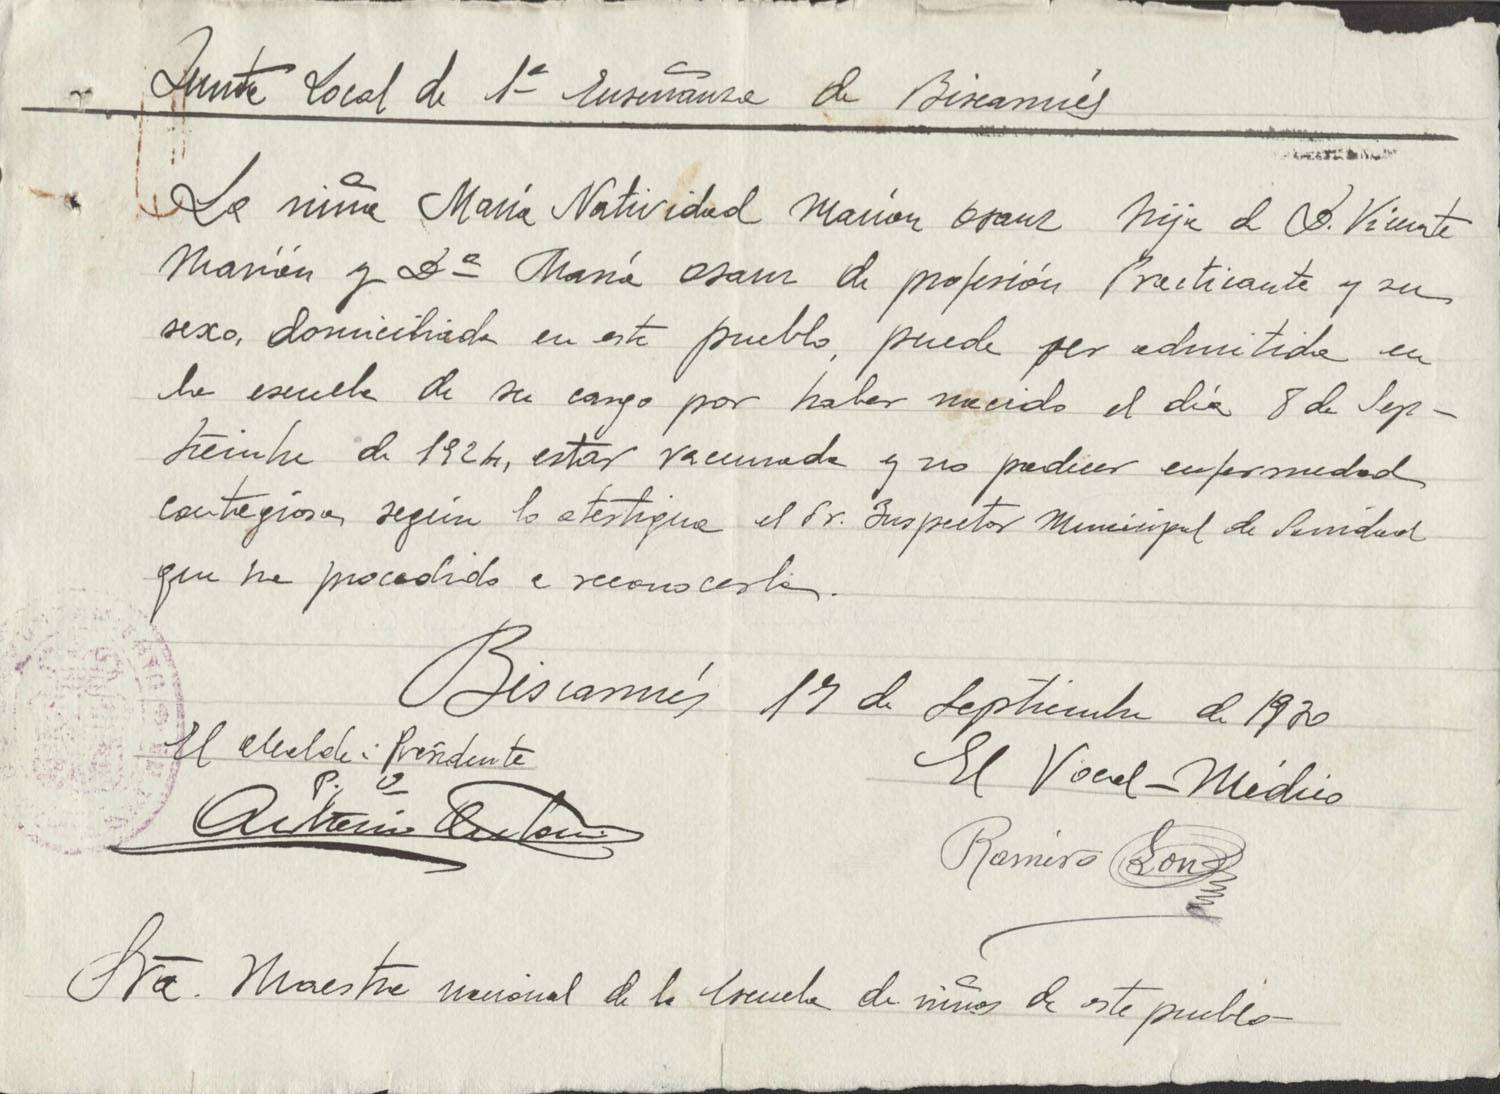 Junta Local de 1ª Enseñanza de Biscarrués
La niña María Natividad Marión Osanz hija de D. Vicente
Marión y Dª María Osanz de profesión Practicante y su
sexo, domiciliada en este pueblo, puede ser admitida en
la escuela de su cargo por haber nacido el día 8 de Sep-
tiembre de 1924, estar vacunada y no padecer enfermedad
contagiosa, según lo atestigua el Sr. Inspector Municipal de Sanidad
que ha procedido a reconocerla.
Biscarrués 17 de Septiembre de 1930
El Alcalde: Presidente
P. O
El Vocal-Médico
Ramiro
Srta. Maestra nacional de la Escuela de niños de este pueblo